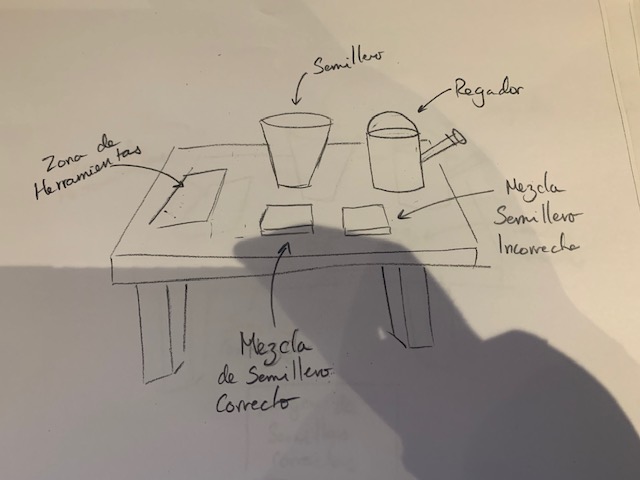 Semillero
Regador
Zona de
Herramientas
Mezcla
Semillero
Incorrecta
Mezcla
de Semillero
Correcto